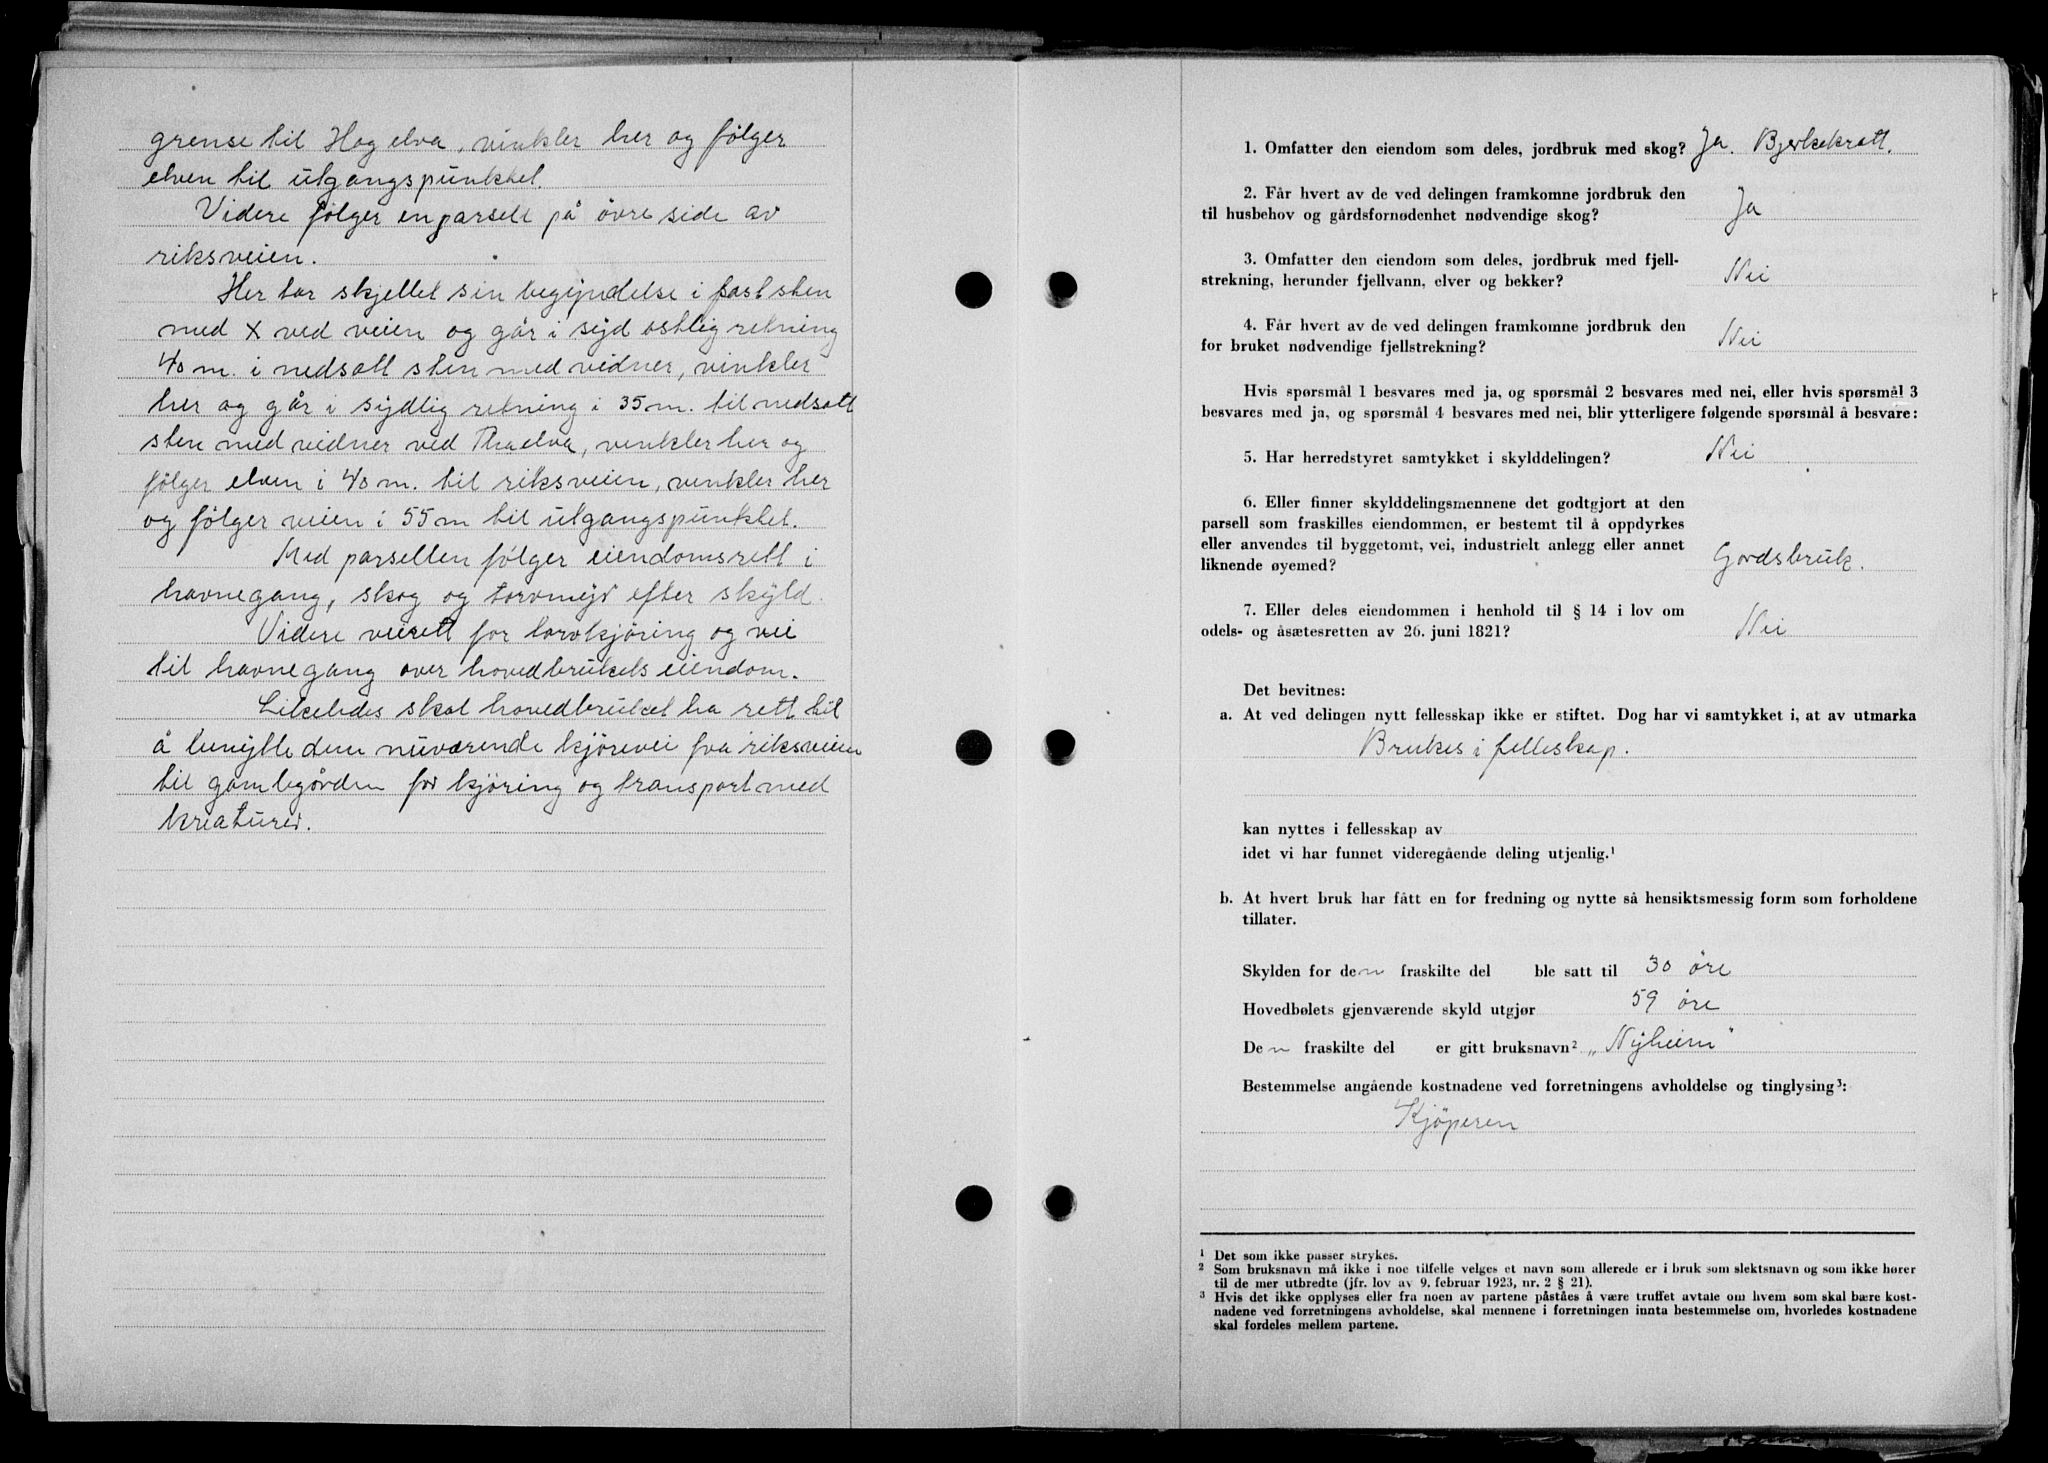 grense til Hag elva, vinkler her og følger
elven til utgangspunktet.
Videre følger en parsell på övre side av
riksveien.
Her tar skjellet sin begyndelse i fast sten
med X ved veien og går i syd ostlig retning
40 m. i nedsatt sten med vidner, vinkler
her og går i sydlig retning i 35 m. til nedsatt
sten med vidner ved elva, vinkler her og
følger elven i 40 m. til riksveien, vinkler her
og følger veien i 55 m til utgangspunktet.
Med parsellen følger eiendomsrett i
havnegang, skog og torvmyr efter skyld.
Videre veirett for torvkjöring og vei
til havnegang over hovedbrukets eiendom.
Likeledes skal hovedbruket ha rett til
å benytte den nuværende kjörevei fra riksveien
til gamlegården for kjöring og transport med
kreaturer.
1. Omfatter den eiendom som deles, jordbruk med skog? Ja. Bjerkekratt.
2. Får hvert av de ved delingen framkomne jordbruk den
til husbehov og gårdsfornødenhet nødvendige skog? Ja
3. Omfatter den eiendom som deles, jordbruk med fjell-
strekning, herunder fjellvann, elver og bekker? Nei
4. Får hvert av de ved delingen framkomne jordbruk den
for bruket nødvendige fjellstrekning? Nei
Hvis spørsmål 1 besvares med ja, og spørsmål 2 besvares med nei, eller hvis spørsmål 3
besvares med ja, og spørsmål 4 besvares med nei, blir ytterligere følgende spørsmål å besvare:
5. Har herredstyret samtykket i skylddelingen? Nei
6. Eller finner skylddelingsmennene det godtgjort at den
parsell som fraskilles eiendommen, er bestemt til å oppdyrkes
eller anvendes til byggetomt, vei, industrielt anlegg eller annet
liknende øyemed? Gårdsbruk.
7. Eller deles eiendommen i henhold til § 14 i lov om
odels- og åsætesretten av 26. juni 1821? Nei
Det bevitnes:
a. At ved delingen nytt fellesskap ikke er stiftet. Dog har vi samtykket i, at av utmarka
Brukes i felleskap.
kan nyttes i fellesskap av
idet vi har funnet videregående deling utjenlig.¹
b. At hvert bruk har fått en for fredning og nytte så hensiktsmessig form som forholdene
tillater.
Skylden for den fraskilte del ble satt til 30 öre
Hovedbølets gjenværende skyld utgjør 59 öre
Den fraskilte del er gitt bruksnavn² „Nyheim"
Bestemmelse angående kostnadene ved forretningens avholdelse og tinglysing³:
Kjöperen
¹ Det som ikke passer strykes.
² Som bruksnavn må ikke i noe tilfelle velges et navn som allerede er i bruk som slektsnavn og som ikke hører
til de mer utbredte (jfr. lov av 9. februar 1923, nr. 2 § 21).
³ Hvis det ikke opplyses eller fra noen av partene påståes å være truffet avtale om hvem som skal bære kost-
nadene ved forretningens avholdelse, skal mennene i forretningen innta bestemmelse om, hvorledes kostnadene
skal fordeles mellem partene.